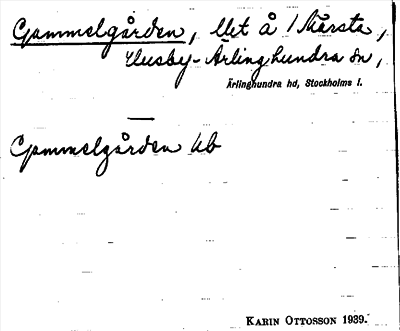 Gammelgården, llet å 1 Märsta,
Husby-Ärlinghundra sn,
Ärlinghundra hd, Stockholms l.
—
Gammelgården ub
KARIN OTTOSSON 1939.